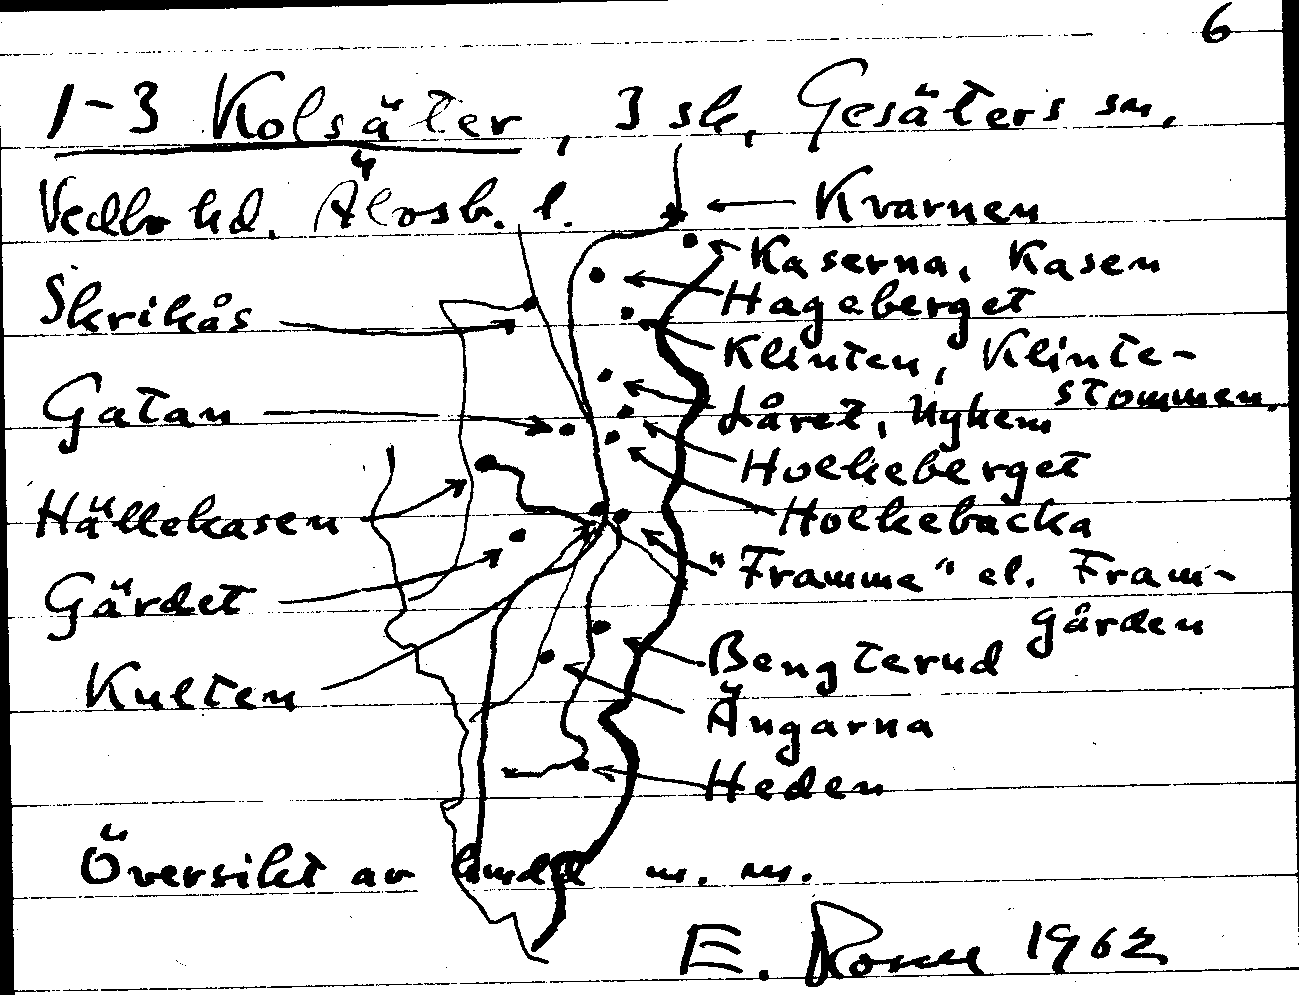 6
1-3 Kolsäter, 3 sk, Gesäters sn,
Vedbo hd. Älvsb. l.
Kvarnen
Kaserna, Kasen
Skrikås
Hageberget
Klinten, Klinte-
stommen.
Gatan
Låret, Nyhem
Holkeberget
Hällekasen
Holkebacka
Gärdet
"Framme" el. Fram-
gården
Kulten
Bengterud
Ängarna
Heden
Översikt av m. m.
E. 1962